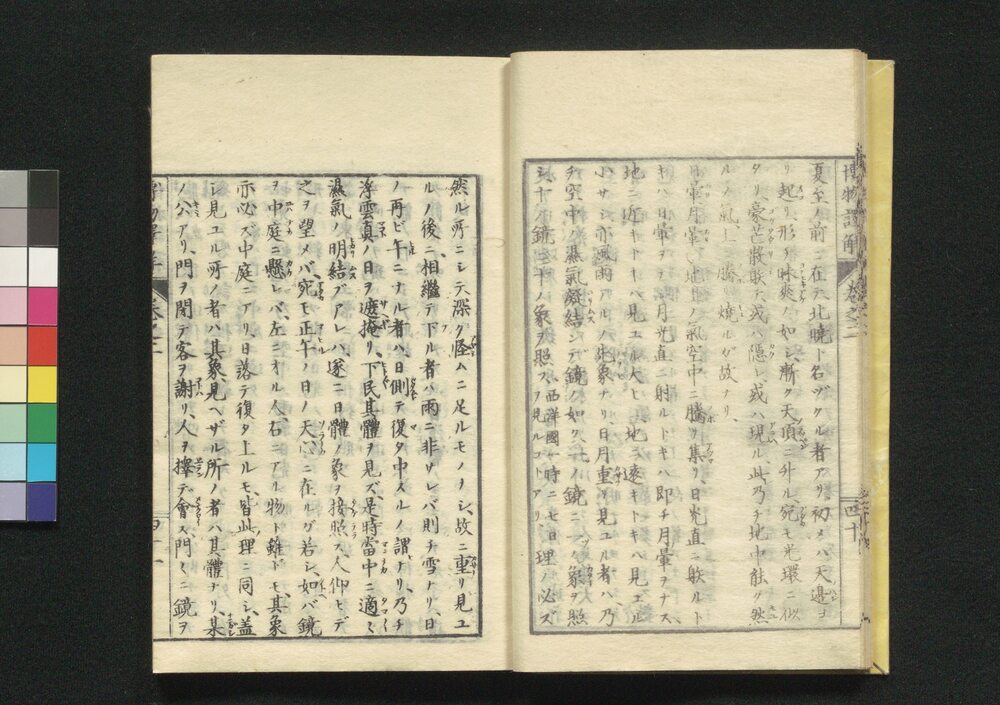 博物語解 卷之二 四十
夏至ノ前ニ在テ北曉ト名ヅクル者アリ初メハ天邊ヨ
リ起リ形チ昧爽ノ如シ漸ク天頂ニ升ル宛モ光環ニ似
タリ豪芒散欺大或ハ隱レ或ハ現ル此乃チ地中ノ然
ルノ氣上騰リ燒ルガ故ナリ
日暈月暈ハ地上ノ氣空中ニ騰リ集リ日光直ニ射ルト
キハ日暈ヲナシ月光直ニ射ルトキハ即チ月暈ヲナス
地ニ近キトキハ見ユル大ヒニ地ニ遠キトキハ見ユル
小サシ亦風雨アルハ此象ナリ日月重リ見ユル者ハ乃
チ空中ノ濕氣凝結シテ鏡ノ如ク此ノ鏡ニノ象ヲ照
シ十ノ鏡ニ十ノ象ヲ照ス西洋國一時ニ七日理ノ必ズ
ヲ見ルコトアリ
然ル所ニシテ深ク怪ムニ足ルモノナシ故ニ重リ見ユ
ルノ後ニ相繼テ下ル者ハ雨ニ非ザレバ則チ雪ナリ日
ノ再ビ午ニナル者ハ日側テ復タ中スルノ謂ナリ乃チ
浮雲真ノ日ヲ遮掩リ下民其體ヲ見ズ是時當中ニ適々
濕氣ノ明結グアレハ遂ニ日體ノ象ヲ接照ス人仰ヒデ
之ヲ望メバ宛モ正午ノ日ノ天心ニ在ルガ若シ如バ鏡
ヲ中庭ニ懸レバ左ニオル人右ニアル物ト雖ドモ其象
亦必ズ中庭ニアリ日落テ復タ上ルモ皆此理ニ同シ蓋
シ見ユル所ノ者ハ其象見ヘザル所ノ者ハ其體ナリ某
ノ公アリ門ヲ閉テ客ヲ謝リ人ヲ擇デ會ス門々ニ鏡ヲ
卷之二 四十一